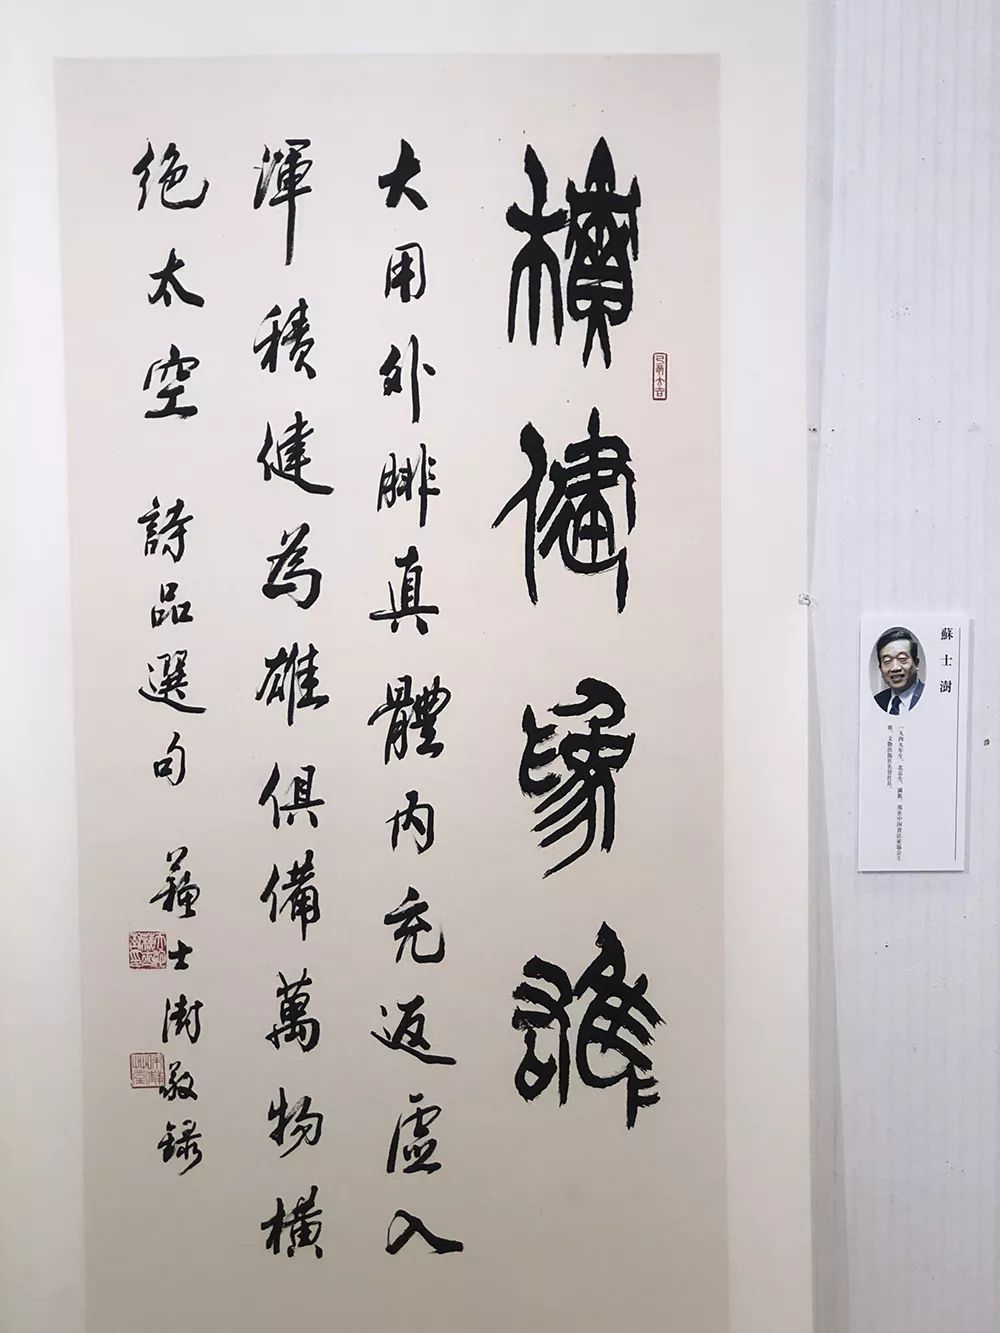 積健為雄
己亥大吉
大用外腓真體內充返虛入
渾積健為雄俱備萬物橫
絕太空 詩品選句 蘇士澍敬錄
蘇士澍
一九四九年生，北京生，滿族。現任中国書法家協会主
席、文物出版社名誉社長。